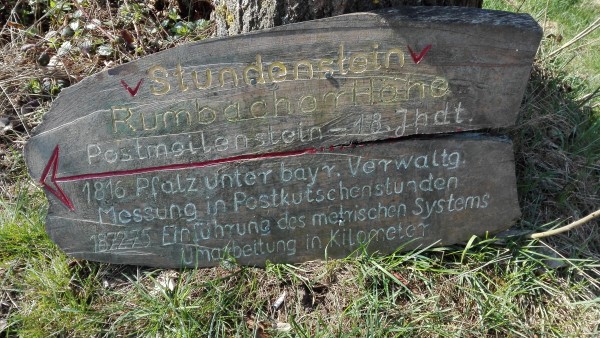 Stundenstein
Rumbacher Höhe
Postmeilenstein - 18. Jhdt.
1816 Pfalz unter bayr. Verwaltg.
Messung in Postkutschenstunden
1872-75 Einführung des metrischen Systems
Umarbeitung in Kilometer